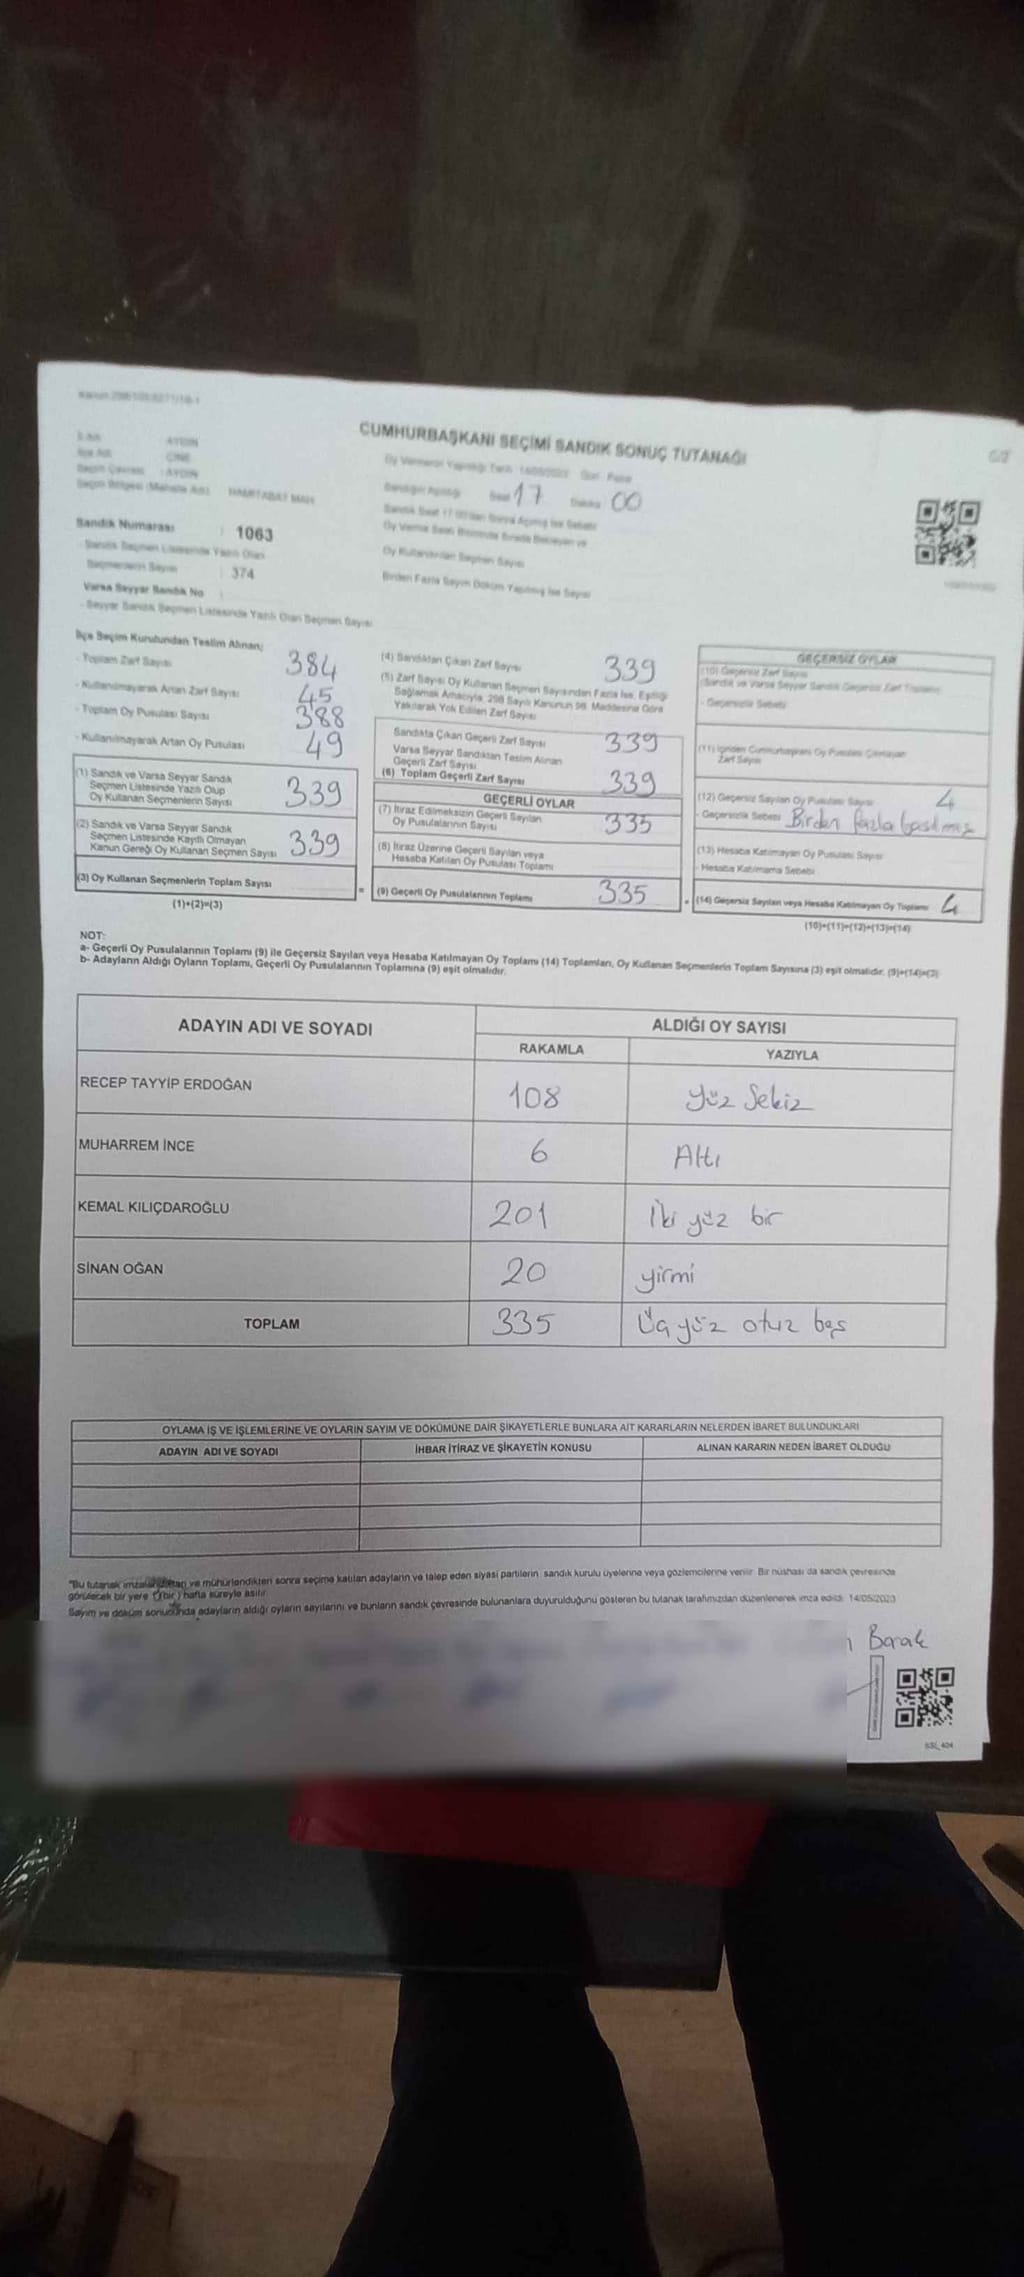 CUMHURBAŞKANI SEÇİMİ SANDIK SONUÇ TUTANAĞI
İl Adı AYDIN
İlçe Adı ÇİNE
Seçim Çevresi : AYDIN
Seçim Bölgesi (Mahalle Adı)
Oy Vermenin Yapıldığı Tarih 14/05/2023 Gün Pazar
Sandığın Açıldığı Saat 17 Dakika 00
Sandık Numarası : 1063
- Sandık Seçmen Listesinde Yazılı Olan
Seçmenlerin Sayısı : 374
Varsa Seyyar Sandık No :
- Seyyar Sandık Seçmen Listesinde Yazılı Olan Seçmen Sayısı
Oy Kullandırılan Seçmen Sayısı
Birden Fazla Sayım Döküm Yapılmış İse Sayısı
İlçe Seçim Kurulundan Teslim Alınan;
- Toplam Zarf Sayısı 384
- Kullanılmayarak Artan Zarf Sayısı 45
- Toplam Oy Pusulası Sayısı 388
- Kullanılmayarak Artan Oy Pusulası 49
(1) Sandık ve Varsa Seyyar Sandık
Seçmen Listesinde Yazılı Olup
Oy Kullanan Seçmenlerin Sayısı 339
(2) Sandık ve Varsa Seyyar Sandık
Seçmen Listesinde Kayıtlı Olmayan
Kanun Gereği Oy Kullanan Seçmen Sayısı 339
(3) Oy Kullanan Seçmenlerin Toplam Sayısı
(1)+(2)=(3)
(4) Sandıktan Çıkan Zarf Sayısı 339
(5) Zarf Sayısı Oy Kullanan Seçmen Sayısından Fazla İse, Eşitliği
Sağlamak Amacıyla, 298 Sayılı Kanunun 98. Maddesine Göre
Yakılarak Yok Edilen Zarf Sayısı
Sandıkta Çıkan Geçerli Zarf Sayısı 339
Varsa Seyyar Sandıktan Teslim Alınan
Geçerli Zarf Sayısı
(6) Toplam Geçerli Zarf Sayısı 339
GEÇERLİ OYLAR
(7) İtiraz Edilmeksizin Geçerli Sayılan
Oy Pusulalarının Sayısı 335
(8) İtiraz Üzerine Geçerli Sayılan veya
Hesaba Katılan Oy Pusulası Toplamı
= (9) Geçerli Oy Pusulalarının Toplamı 335
GEÇERSİZ OYLAR
(10) Geçersiz Zarf Sayısı
(Sandık ve Varsa Seyyar Sandık Geçersiz Zarf Toplamı)
- Geçersizlik Sebebi
(11) İçinden Cumhurbaşkanı Oy Pusulası Çıkmayan
Zarf Sayısı
(12) Geçersiz Sayılan Oy Pusulası Sayısı 4
- Geçersizlik Sebebi Birden fazla basılmış
(13) Hesaba Katılmayan Oy Pusulası Sayısı
- Hesaba Katılmama Sebebi
(14) Geçersiz Sayılan veya Hesaba Katılmayan Oy Toplamı 4
(10)+(11)+(12)+(13)=(14)
NOT:
a- Geçerli Oy Pusulalarının Toplamı (9) ile Geçersiz Sayılan veya Hesaba Katılmayan Oy Toplamı (14) Toplamları, Oy Kullanan Seçmenlerin Toplam Sayısına (3) eşit olmalıdır. (9)+(14)=(3)
b- Adayların Aldığı Oyların Toplamı, Geçerli Oy Pusulalarının Toplamına (9) eşit olmalıdır.
ADAYIN ADI VE SOYADI ALDIĞI OY SAYISI
RAKAMLA YAZIYLA
RECEP TAYYİP ERDOĞAN 108 yüz Sekiz
MUHARREM İNCE 6 Altı
KEMAL KILIÇDAROĞLU 201 İki yüz bir
SİNAN OĞAN 20 yirmi
TOPLAM 335 Üçyüz otuz beş
OYLAMA İŞ VE İŞLEMLERİNE VE OYLARIN SAYIM VE DÖKÜMÜNE DAİR ŞİKAYETLERLE BUNLARA AİT KARARLARIN NELERDEN İBARET BULUNDUKLARI
ADAYIN ADI VE SOYADI İHBAR İTİRAZ VE ŞİKAYETİN KONUSU ALINAN KARARIN NEDEN İBARET OLDUĞU
"Bu tutanak imzalandıktan ve mühürlendikten sonra seçime katılan adayların ve talep eden siyasi partilerin sandık kurulu üyelerine veya gözlemcilerine verilir. Bir nüshası da sandık çevresinde
görülecek bir yere (bir) hafta süreyle asılır.
Sayım ve döküm sonucunda adayların aldığı oyların sayılarını ve bunların sandık çevresinde bulunanlara duyurulduğunu gösteren bu tutanak tarafımızdan düzenlenerek imza edildi. 14/05/2023
Borak